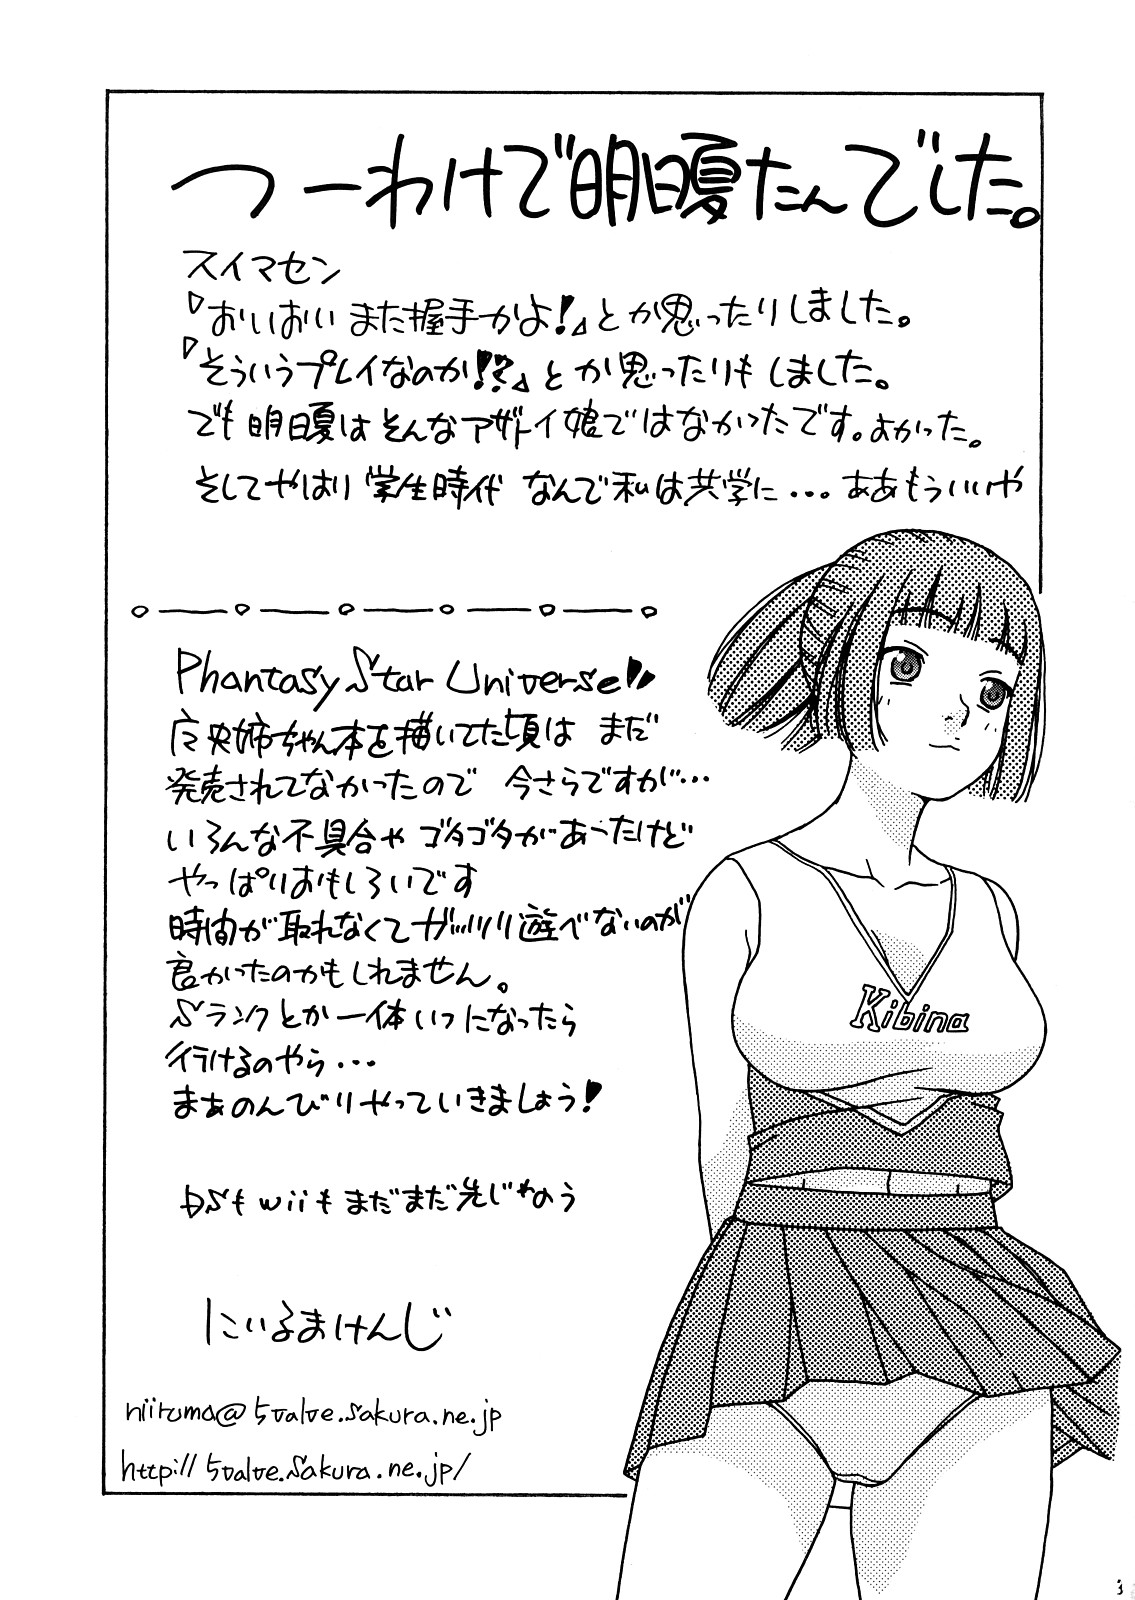 つーわけで明日夏たんでした。
スイマセン
『おいおい また握手かよ!』とか思ったりしました。
『そういうプレイなのか!?』とか思ったりもしました。
でも明日夏はそんなアザトイ娘ではなかったです。よかった。
そしてやはり 学生時代 なんで私は共学に・・・ああもういいや
Phantasy Star Universe!!
広央姉ちゃん本を描いてた頃は まだ
発売されてなかったので 今さらですが・・・
いろんな不具合や ゴタゴタがあったけど
やっぱりおもしろいです
時間が取れなくてガッツリ遊べないのが
良かったのかもしれません。
Sランクとか一体いつになったら
行けるのやら・・・
まぁのんびりやっていきましょう!
DSもwiiもまだまだ先じゃのう
Kibina
にいるまけんじ
niiruma@5valve.sakura.ne.jp
http://5valve.sakura.ne.jp/